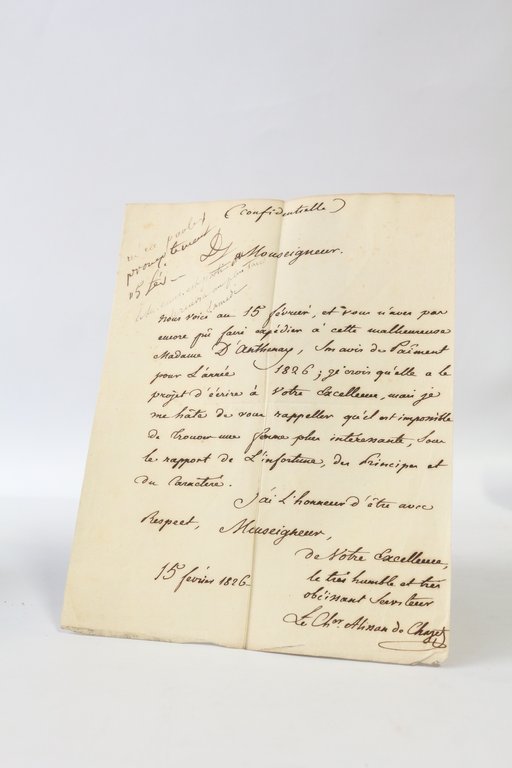 (Confidentielle)
promptement
15 fév -
Monseigneur.
Nous voici au 15 février, et vous n'avez pas
encore pû faire expédier à cette malheureuse
Madame D'Anthenay, son avis de Paîment
pour L'année 1826; je crois qu'elle a le
projet d'écrire à Votre Excellence, mais je
me hâte de vous rappeller qu'il est impossible
de trouver une femme plus intéressante, sous
le rapport de L'infortune, des Principes et
du Caractère.
J'ai L'honneur d'être avec
Respect, Monseigneur,
de Votre Excellence,
le très humble et très
obéissant Serviteur
Le Cher. Alissan de Chazet
15 février 1826.